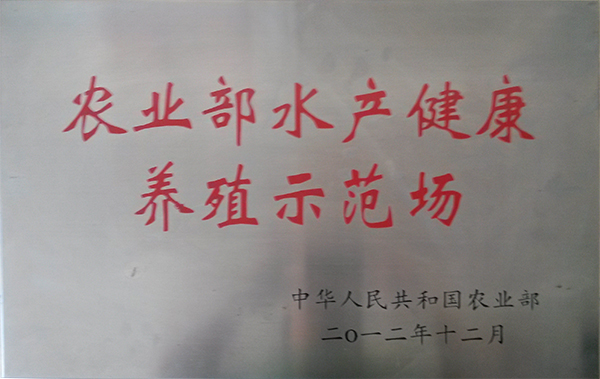 农业部水产健康
养殖示范场
中华人民共和国农业部
二〇一二年十二月